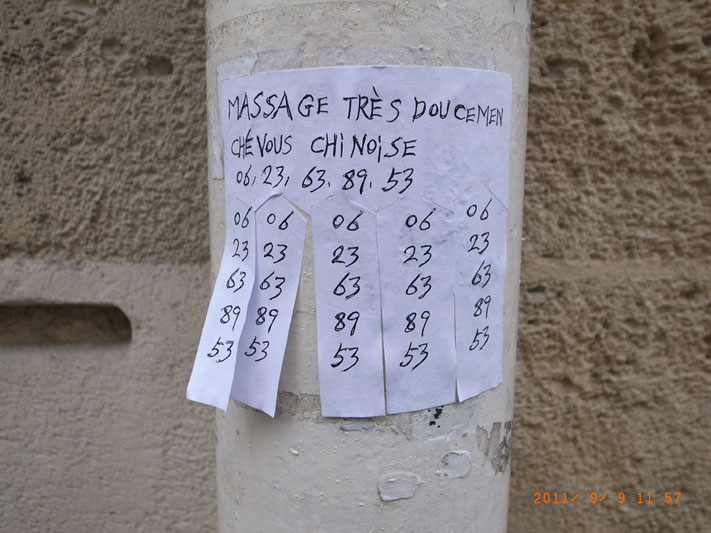 MASSAGE TRÈS DOUCEMEN
CHÉVOUS CHINOISE
06. 23. 63. 89. 53
06
23
63
89
53
06
23
63
89
53
06
23
63
89
53
06
23
63
89
53
06
23
63
89
53
2011/ 9/ 9 11 57